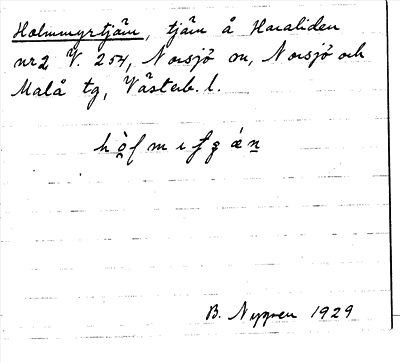 Holmmyrtjärn, tjärn å Haraliden
nr2 V. 254, Norsjö sn, Norsjö och
Malå tg, Västerb. l.
B. Nygren 1929